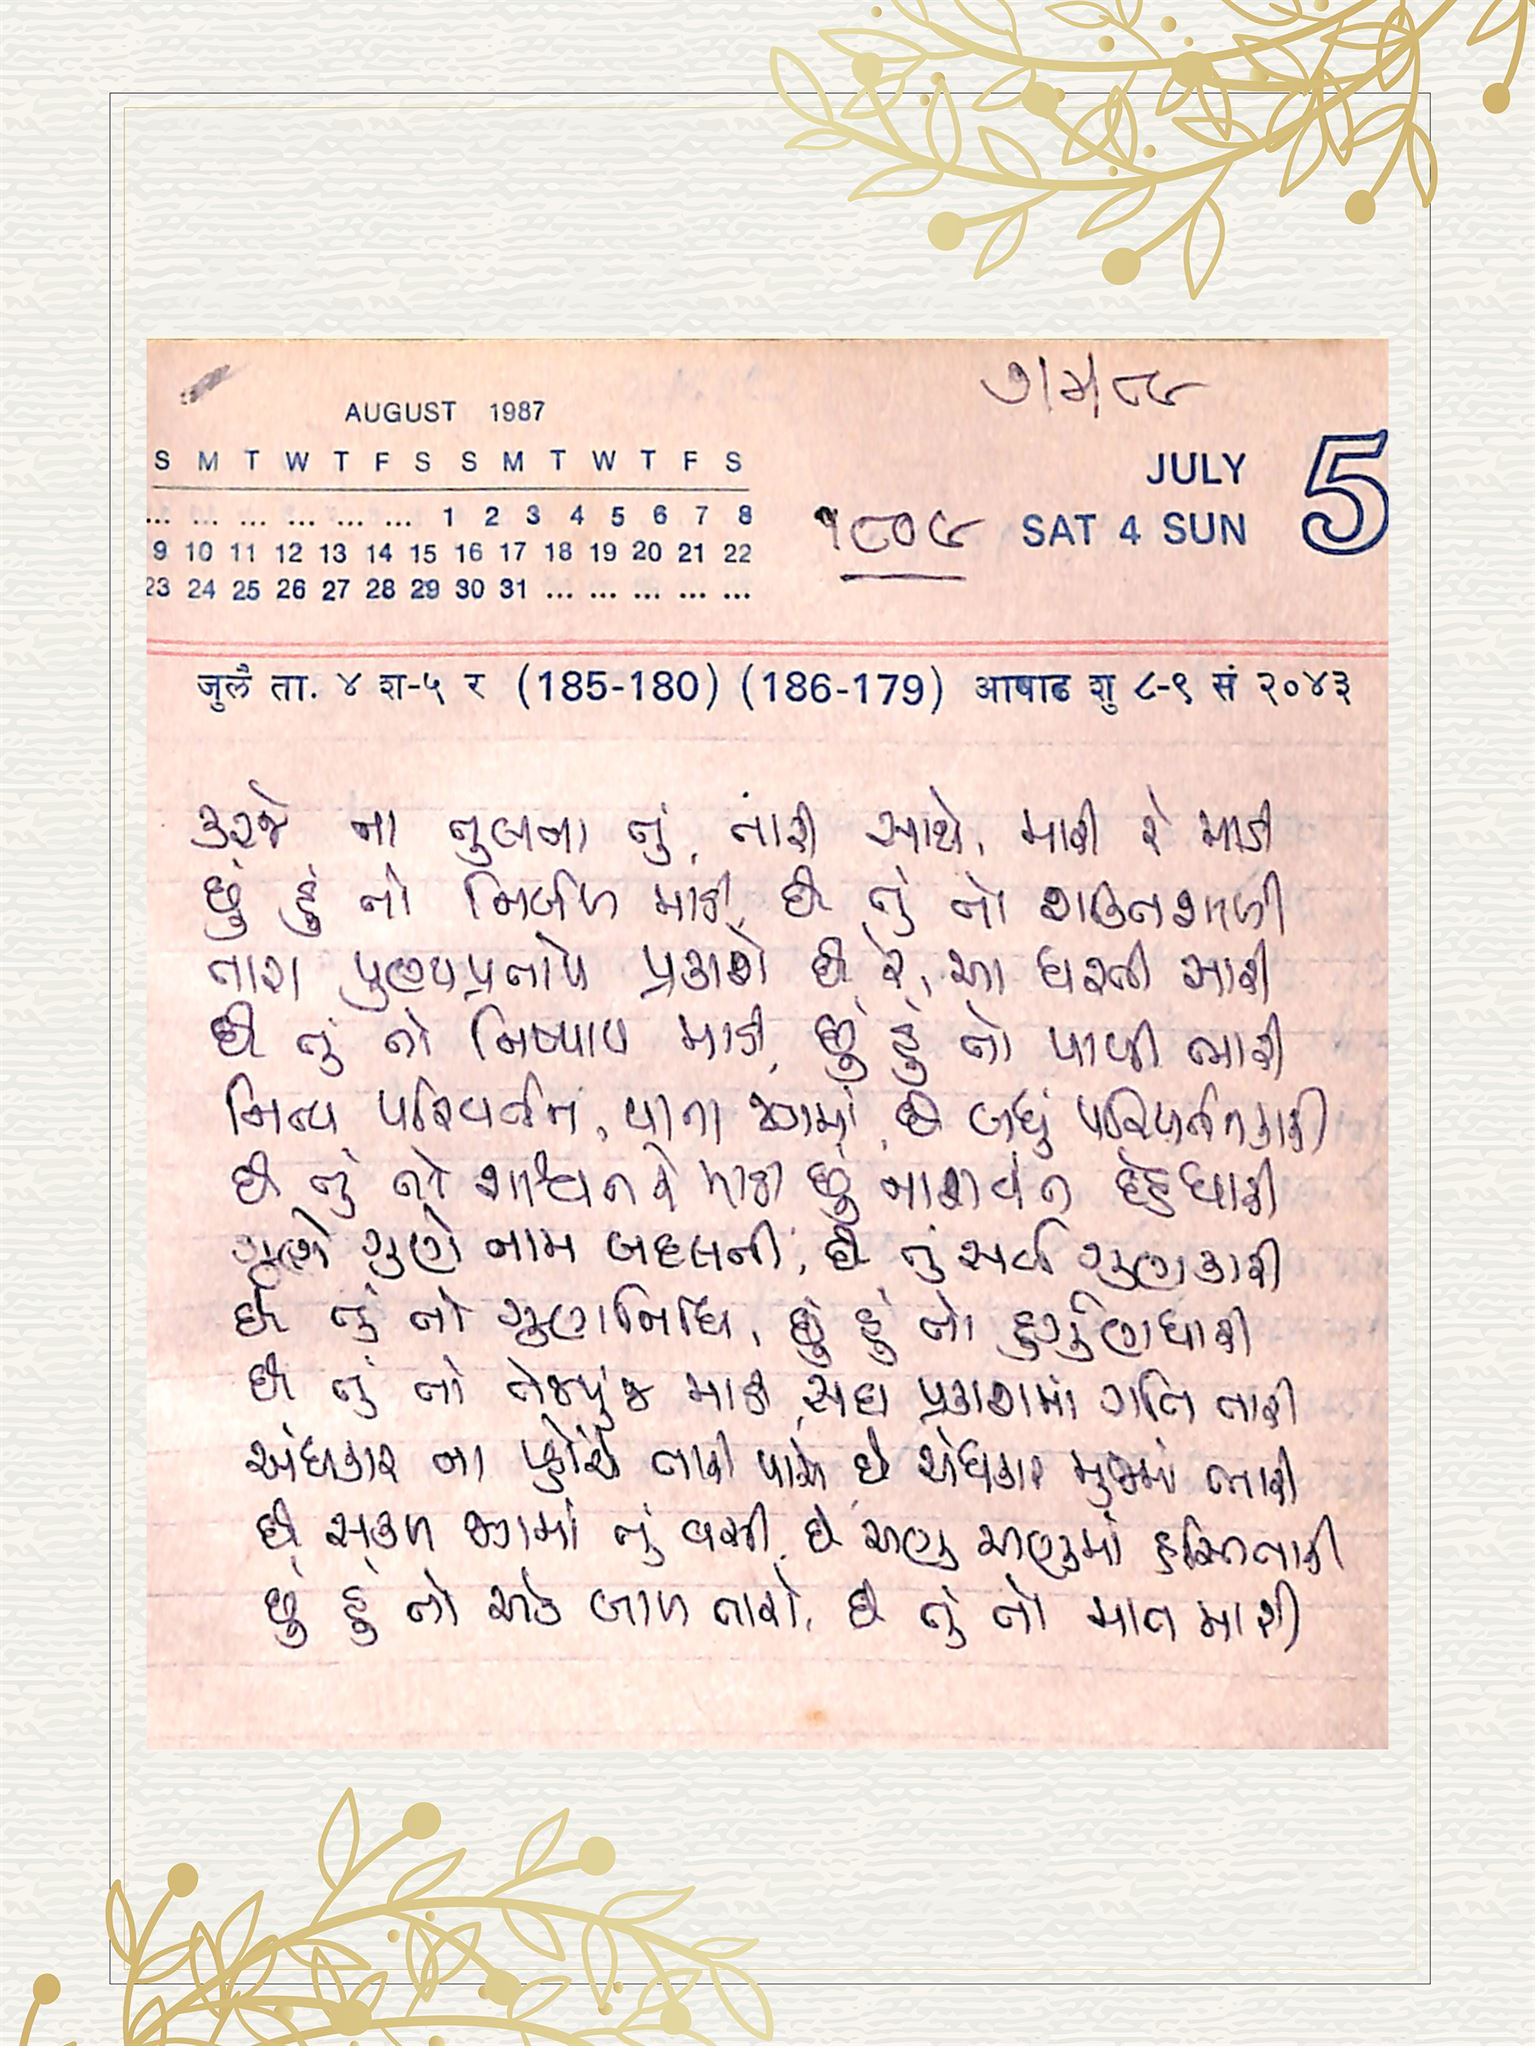 ૭/મ/૮૯
AUGUST 1987
S M T W T F S S M T W T F S
... ... ... ... ... ... 1 2 3 4 5 6 7 8
9 10 11 12 13 14 15 16 17 18 19 20 21 22
23 24 25 26 27 28 29 30 31 ... ... ... ... ...
JULY 5
૧૮૦૯ SAT 4 SUN
जुलै ता. ४ श-५ र (185-180) (186-179) आषाढ शु ८-९ सं २०४३
કરજે ના તુલના તું, તારી સાથે, મારી રે માડી
છું હું તો નિર્બળ માડી, છે તું તો શક્તિશાળી
તારા પુણ્યપ્રતાપે પ્રકાશે છે રે, આ ધરતી સારી
છે તું તો નિષ્પાપ માડી, છું હું તો પાપી ભારી
નિત્ય પરિવર્તન, પામતા જગમાં, છે બધું પરિવર્તનકારી
છે તું તો શાશ્વત રે માડી છું નાશવંત દેહધારી
ગુણે ગુણે નામ બદલતી, છે તું સર્વ ગુણકારી
છે તું તો ગુણનિધિ, છું હું તો દુર્ગુણધારી
છે તું તો તેજપુંજ માડી, સદા પ્રકાશમાં ગતિ તારી
અંધકાર ના પહોંચે તારી પાસે છે અંધકાર મુજમાં ભારી
છે સકળ જગમાં તું વસી, છે અણુ અણુમાં હસ્તિ તારી
છું હું તો એક બાળ તારો, છે તું તો માત મારી